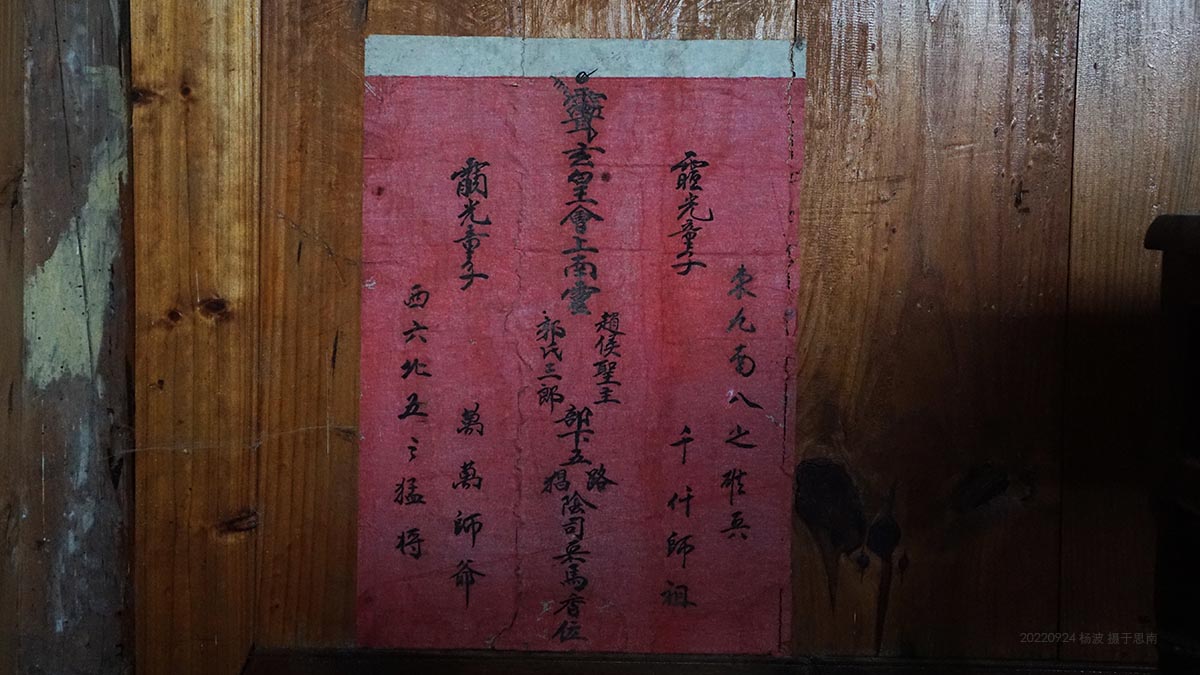 東九南八之雄兵
光童子
千仟師祖
玄皇會上南
趙侯聖主
郭氏三郎
部下五路猖陰司兵馬香位
光童子
萬萬師爺
西六北五之猛将
20220924 杨波 摄于思南